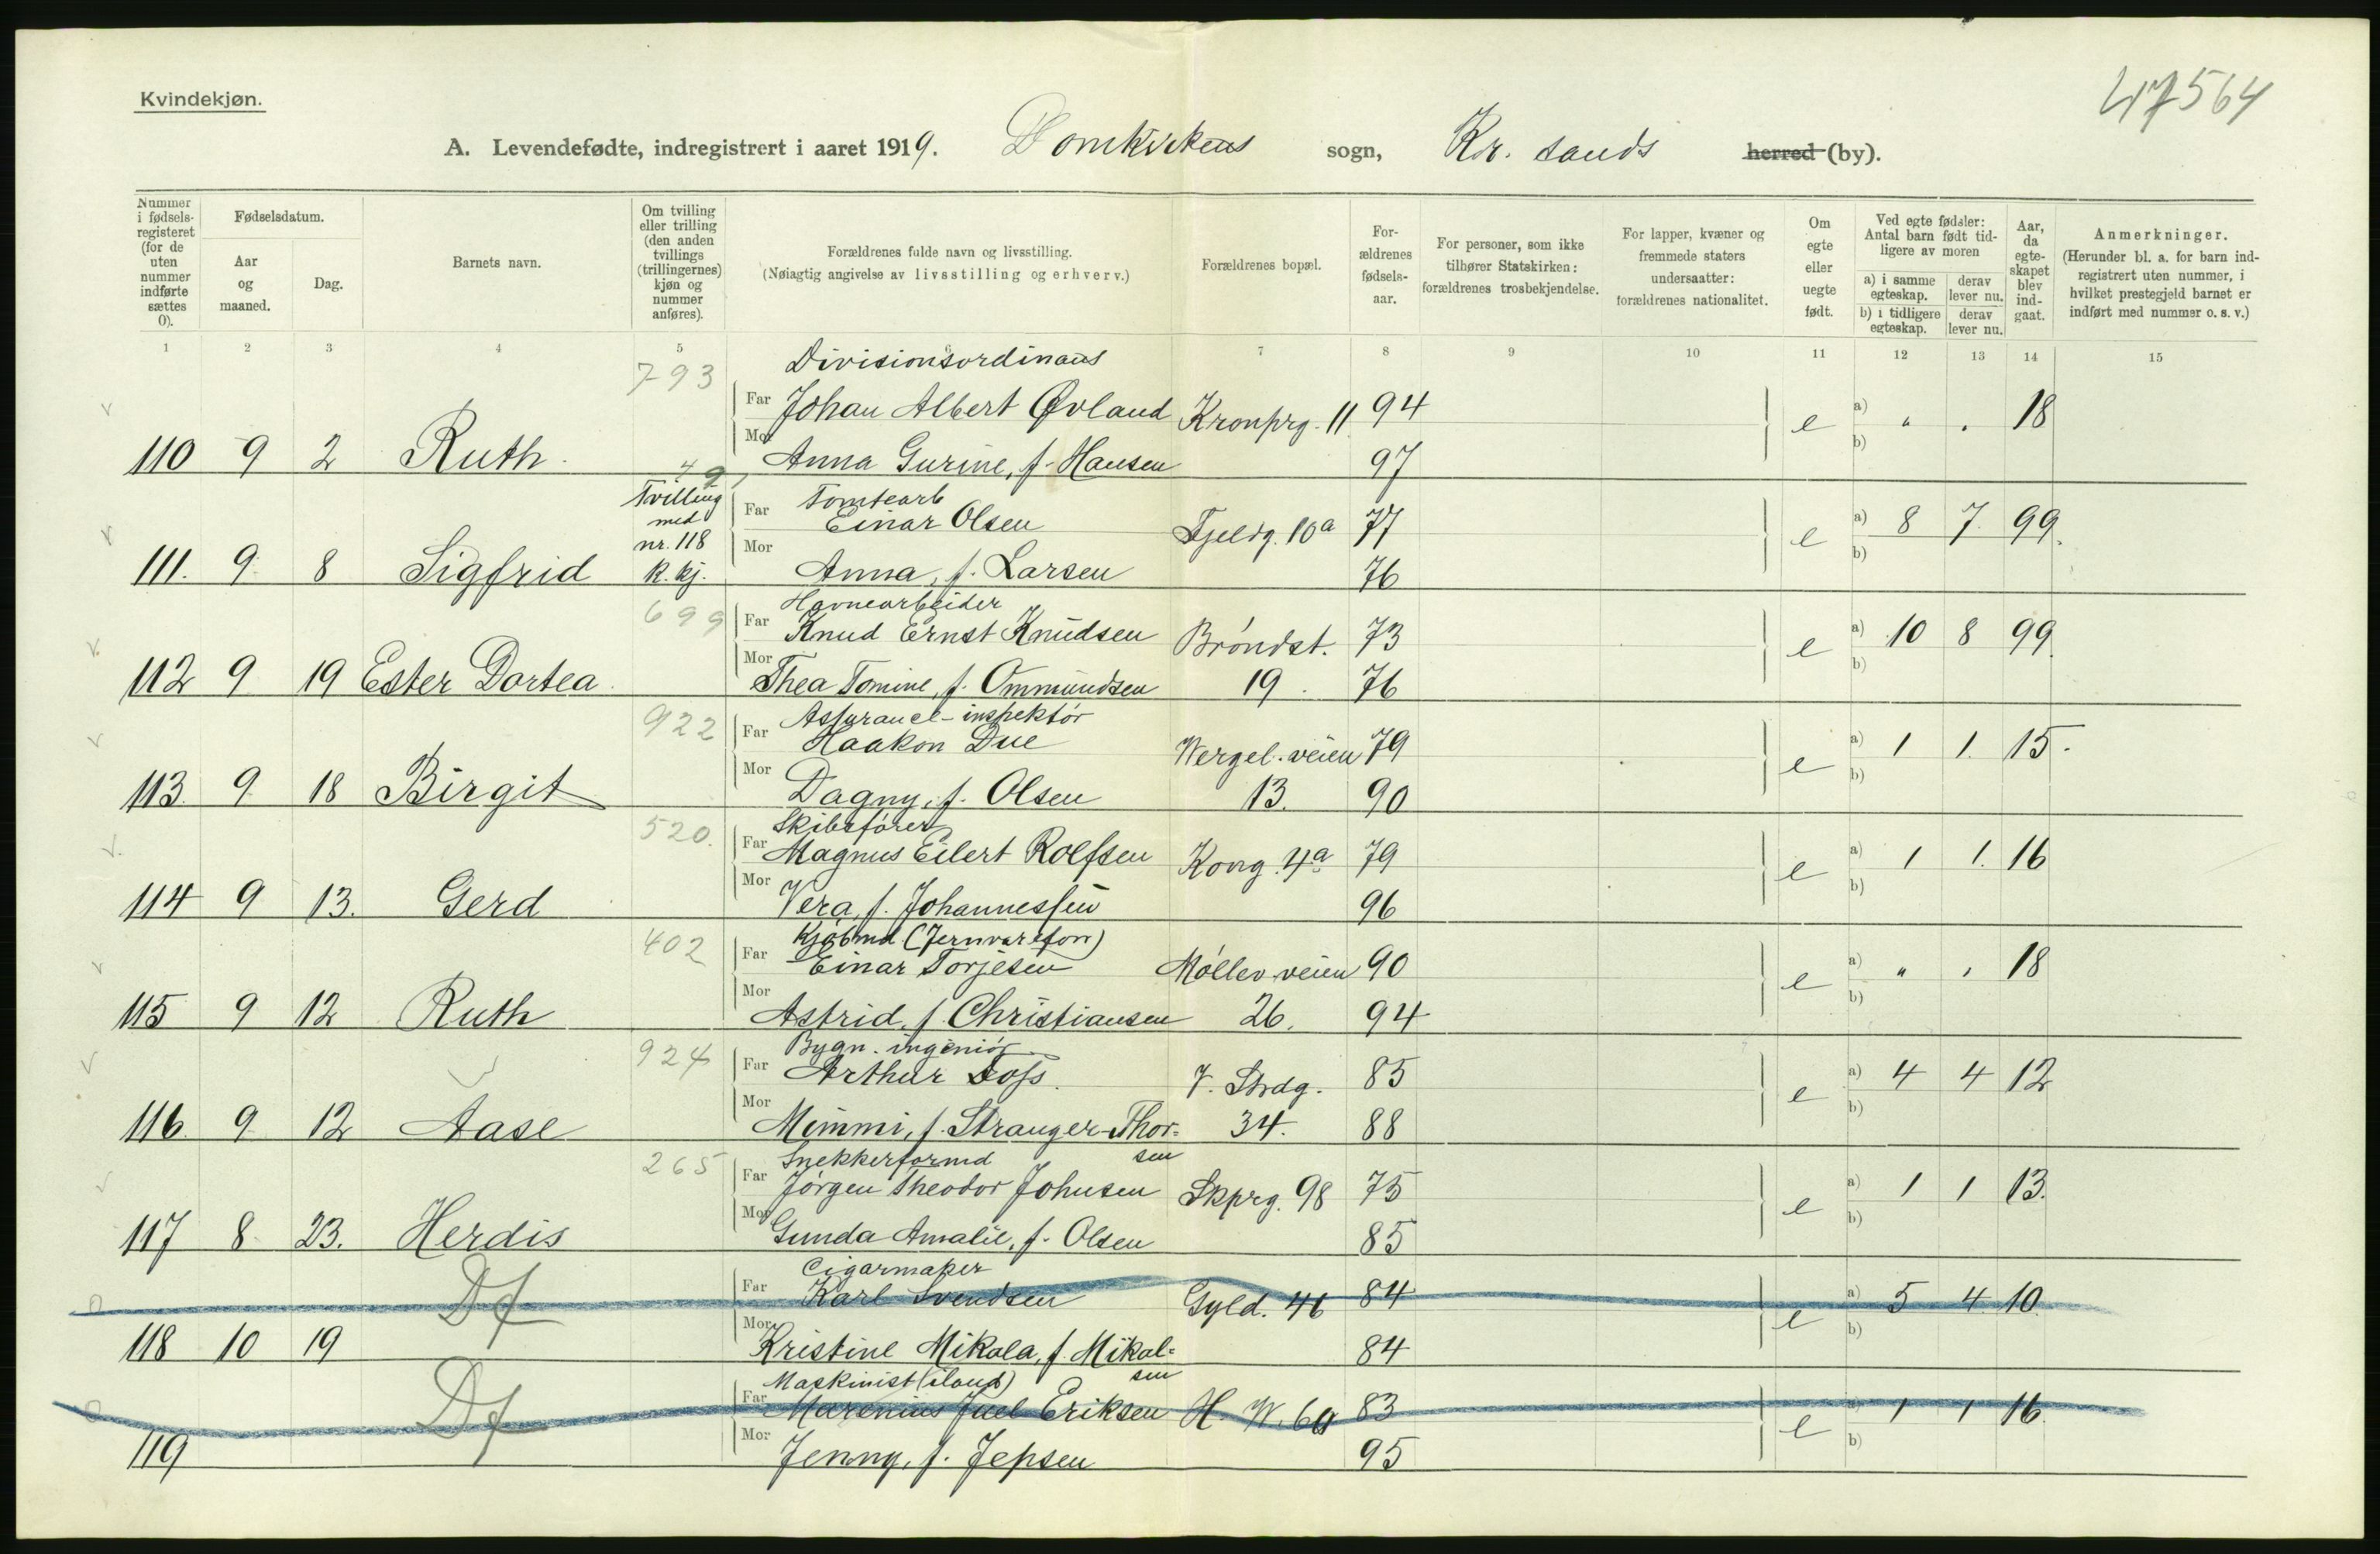 Kvindekjøn.
47564
A. Levendefødte, indregistrert i aaret 1919. Domkirkens sogn, Kr. sands herred (by).
Nummer i fødselsregisteret (for de uten nummer indførte sættes 0).
Fødselsdatum.
Aar og maaned.
Dag.
Barnets navn.
Om tvilling eller trilling (den anden tvillings (trillingernes) kjøn og nummer anføres).
Forældrenes fulde navn og livsstilling.
(Nøiagtig angivelse av livsstilling og erhverv.)
Forældrenes bopæl.
Forældrenes fødselsaar.
For personer, som ikke tilhører Statskirken: forældrenes trosbekjendelse.
For lapper, kvæner og fremmede staters undersaatter: forældrenes nationalitet.
Om egte eller uegte født.
Ved egte fødsler: Antal barn født tidligere av moren
a) i samme egteskap. derav lever nu.
b) i tidligere egteskap. derav lever nu.
Aar, da egteskapet blev indgaat.
Anmerkninger.
(Herunder bl. a. for barn indregistrert uten nummer, i hvilket prestegjeld barnet er indført med nummer o. s. v.)
1 2 3 4 5 6 7 8 9 10 11 12 13 14 15
793 Divisionsordinans
Far Johan Albert Øvland Kronprg. 11 94 e a) " . 18
b)
110 9 2 Ruth Mor Anna Gurine, f. Hansen 97
49
Tvilling med nr. 118 K. kj.
Tomtearb
Far Einar Olsen Fjeldg. 10a 77 e a) 8 7 99
b)
111. 9 8 Sigfrid Mor Anna, f. Larsen 76
699 Havnearbeider
Far Knud Ernst Knudsen Brøndst. 73 e a) 10 8 99
b)
112 9 19 Ester Dortea Mor Thea Tomine, f. Ommundsen 19. 76
922 Assurance-inspektør
Far Haakon Due Wergel. veien 79 e a) 1 1. 15.
b)
113. 9 18 Birgit Mor Dagny, f. Olsen 13. 90
520. Skibsfører
Far Magnus Eilert Rolfsen Kong. 4a 79 e a) 1 1. 16
b)
114 9 13. Gerd Mor Vera, f. Johannessen 96
402 Kjøbmd (Jernvareforr)
Far Einar Torjesen Møllev veien 90 e a) " , 18
b)
115 9 12 Ruth Mor Astrid, f. Christiansen 26. 94
924 Bygn. ingeniør
Far Arthur Foss. V. Strdg. 85 e a) 4 4 12
b)
116. 9 12 Aase Mor Mimmi, f. Stranger-Thorsen 34. 88
265 Snekkerformd
Far Jørgen Theodor Johnsen Skprg. 98 75 e a) 1 1 13.
b)
117 8 23. Herdis Mor Gunda Amalie, f. Olsen 85
Df
Cigarmaker
Far Karl Svendsen Gyld. 46 84 e a) 5 4 10.
b)
118 10 19 Mor Kristine Mikala, f. Mikalsen 84
Df
Maskinist (iland)
Far Marenius Juel Eriksen H. W. 60 83 e a) 1 1 16.
b)
119 Mor Jenny, f. Jepsen 95